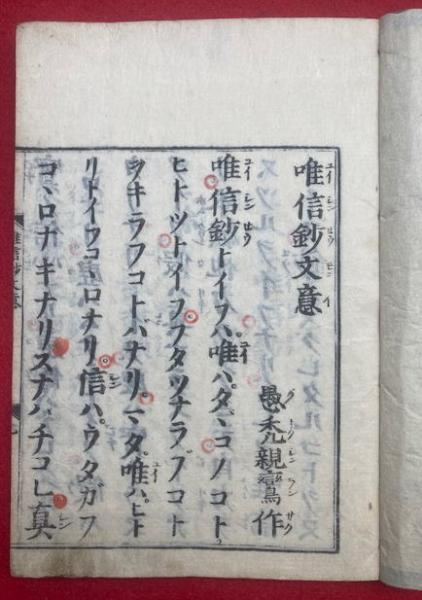 唯信鈔文意
愚禿親鸞作
唯信鈔トイフハ唯ハタヾコノコト
ヒトツトイフフタツナラブコト
ヲキラフコトバナリマタ唯ハヒト
リトイフコヽロナリ信ハウタガフ
コヽロナキナリスナハチコレ真
唯信鈔文意